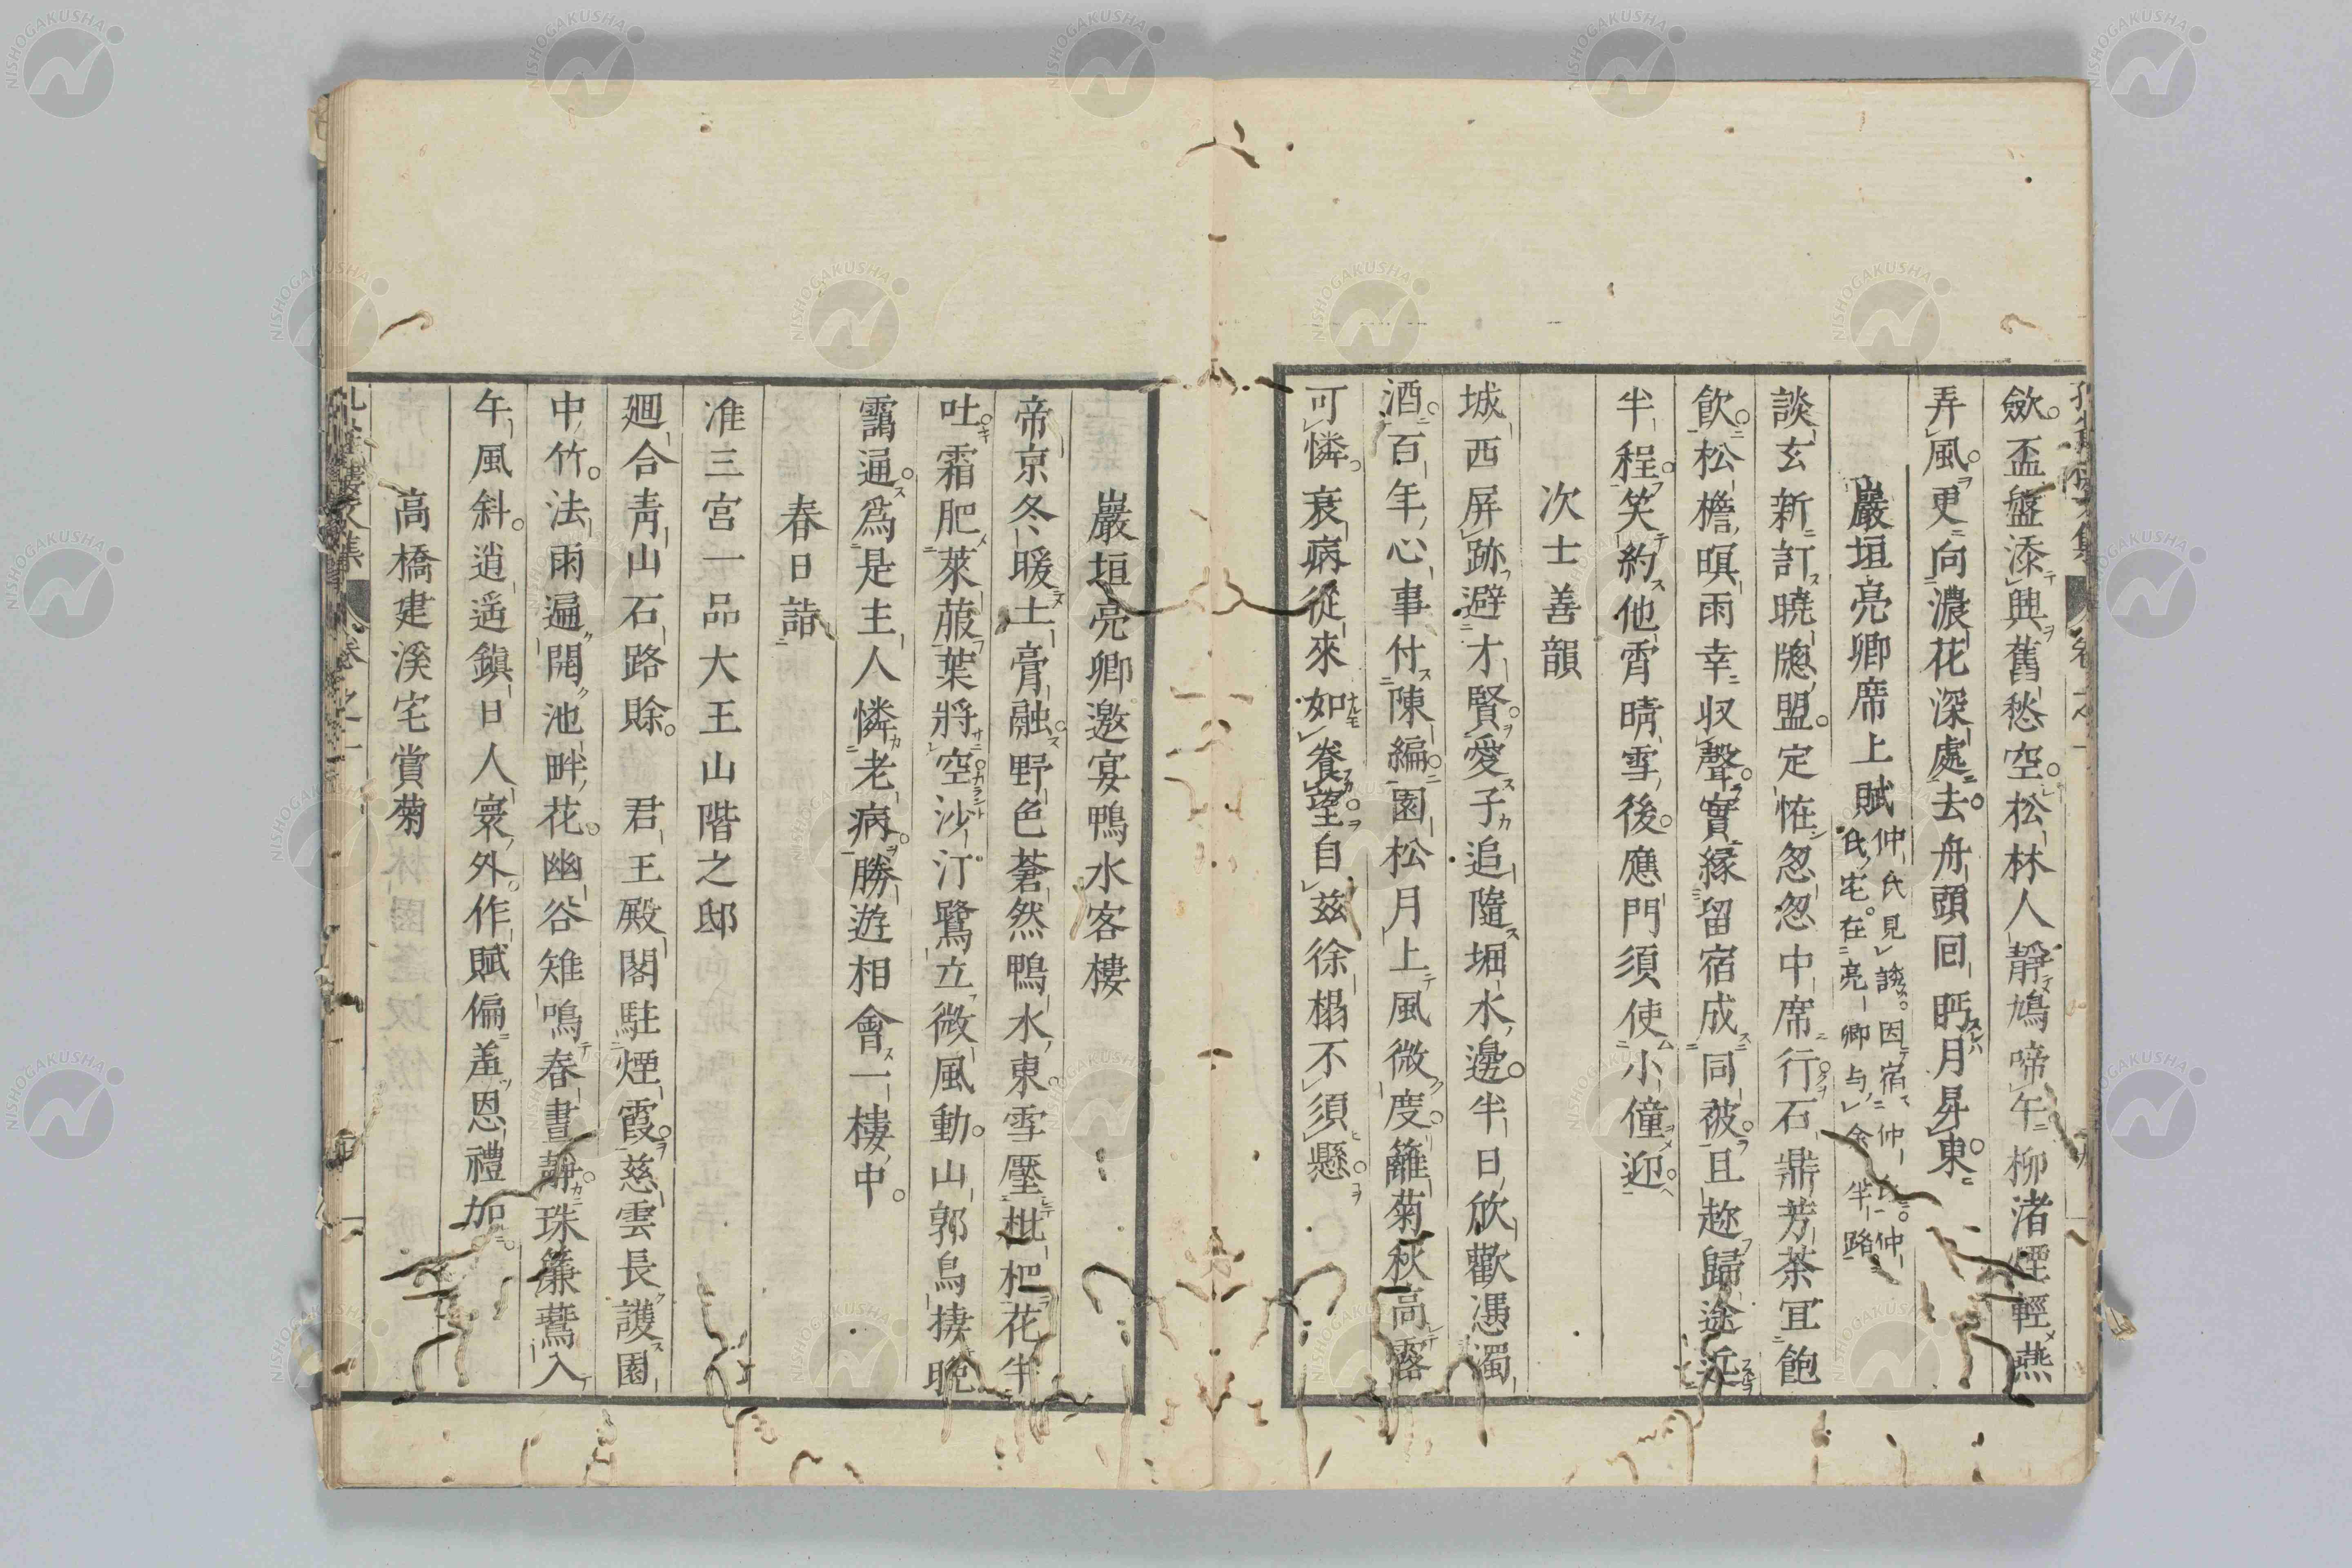 歛盃盤添興舊愁空松林人靜鳩啼午柳渚煙輕燕
弄風更向濃花深處去舟頭回眄月昇東
巖垣亮卿席上賦
仲氏見談因宿仲氏仲
氏宅在亮卿与余半路
談玄新訂曉牕盟定恠怱怱中席行石鼎芳茶宜飽
飮松檐暝雨幸収聲實緣留宿成同被且趂歸途近
半程笑約他宵晴雪後應門須使小僮迎
次士善韻
城西屏跡避才賢愛子追隨堀水邊半日欣歡慿濁
酒百年心事付陳編園松月上風微度籬菊秋高露
可憐衰病從來如養望自茲徐榻不須懸
巖垣亮卿邀宴鴨水客樓
帝京冬暖土膏融野色蒼然鴨水東雪壓枇杷花半
吐霜肥萊菔葉將空沙汀鷺立微風動山郭鳥捿晩
靄通爲是主人憐老病勝遊相會一樓中
春日詣
准三宮一品大王山階之邸
廻合靑山石路賒 君王殿閣駐煙霞慈雲長護園
中竹法雨遍開池畔花幽谷雉鳴春晝靜珠簾鷰入
午風斜逍遥鎭日人寰外作賦偏羞恩禮加
高橋建溪宅賞菊